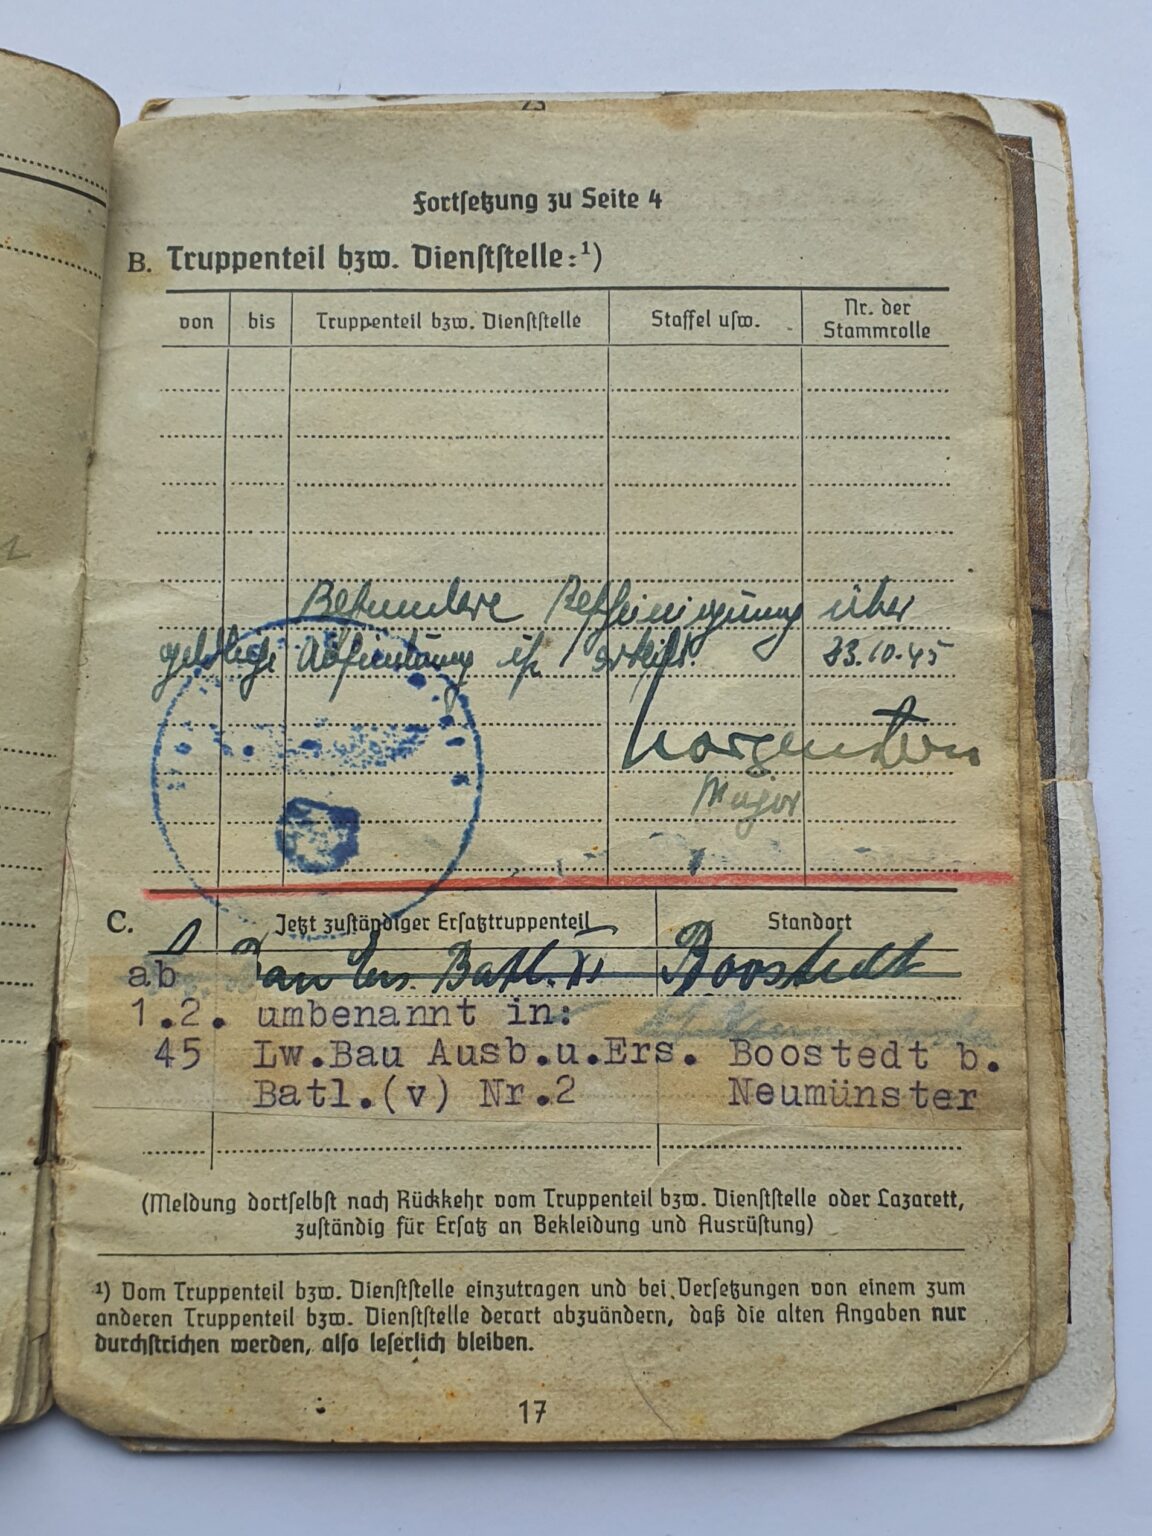 Fortsetzung zu Seite 4
B. Truppenteil bzw. Dienststelle:¹)
von bis Truppenteil bzw. Dienststelle Staffel usw. Nr. der Stammrolle
Besondere Bescheinigung über
geldliche Abfindung ist erteilt. 23.10.45
Morgenstern
Major
C. Jetzt zuständiger Ersatztruppenteil Standort
Bau Ers. Batl. VI Boostedt
ab
1.2. umbenannt in:
45 Lw.Bau Ausb.u.Ers. Boostedt b.
Batl.(v) Nr.2 Neumünster
(Meldung dortselbst nach Rückkehr vom Truppenteil bzw. Dienststelle oder Lazarett,
zuständig für Ersatz an Bekleidung und Ausrüstung)
¹) Vom Truppenteil bzw. Dienststelle einzutragen und bei Versetzungen von einem zum
anderen Truppenteil bzw. Dienststelle derart abzuändern, daß die alten Angaben nur
durchstrichen werden, also leserlich bleiben.
17